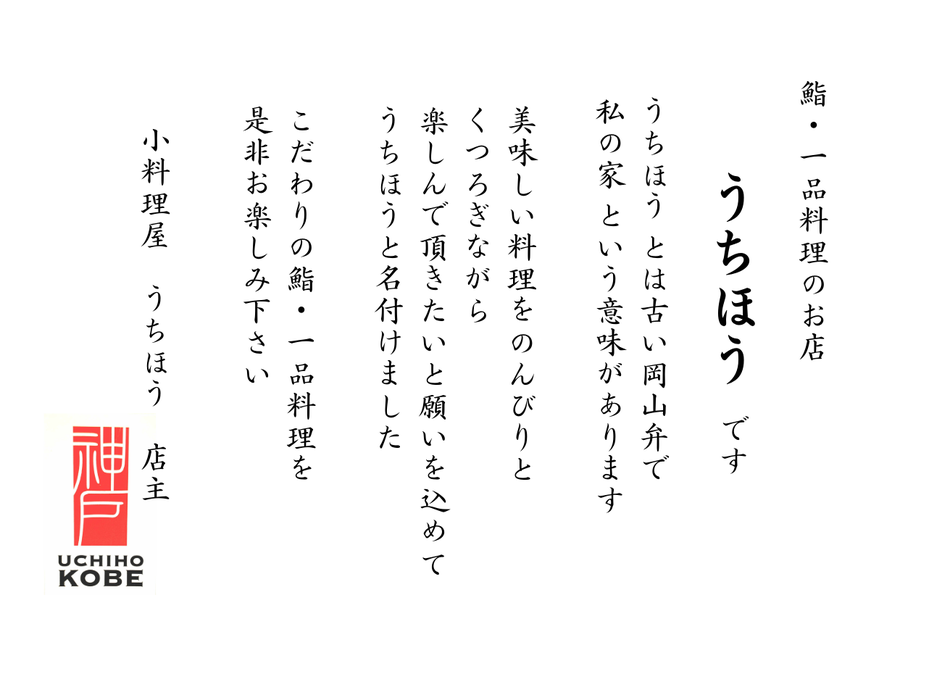 鮨・一品料理のお店
うちほう です
うちほう とは古い岡山弁で
私の家 という意味があります
美味しい料理をのんびりと
くつろぎながら
楽しんで頂きたいと願いを込めて
うちほうと名付けました
こだわりの鮨・一品料理を
是非お楽しみ下さい
小料理屋 うちほう 店主
神戸
UCHIHO
KOBE